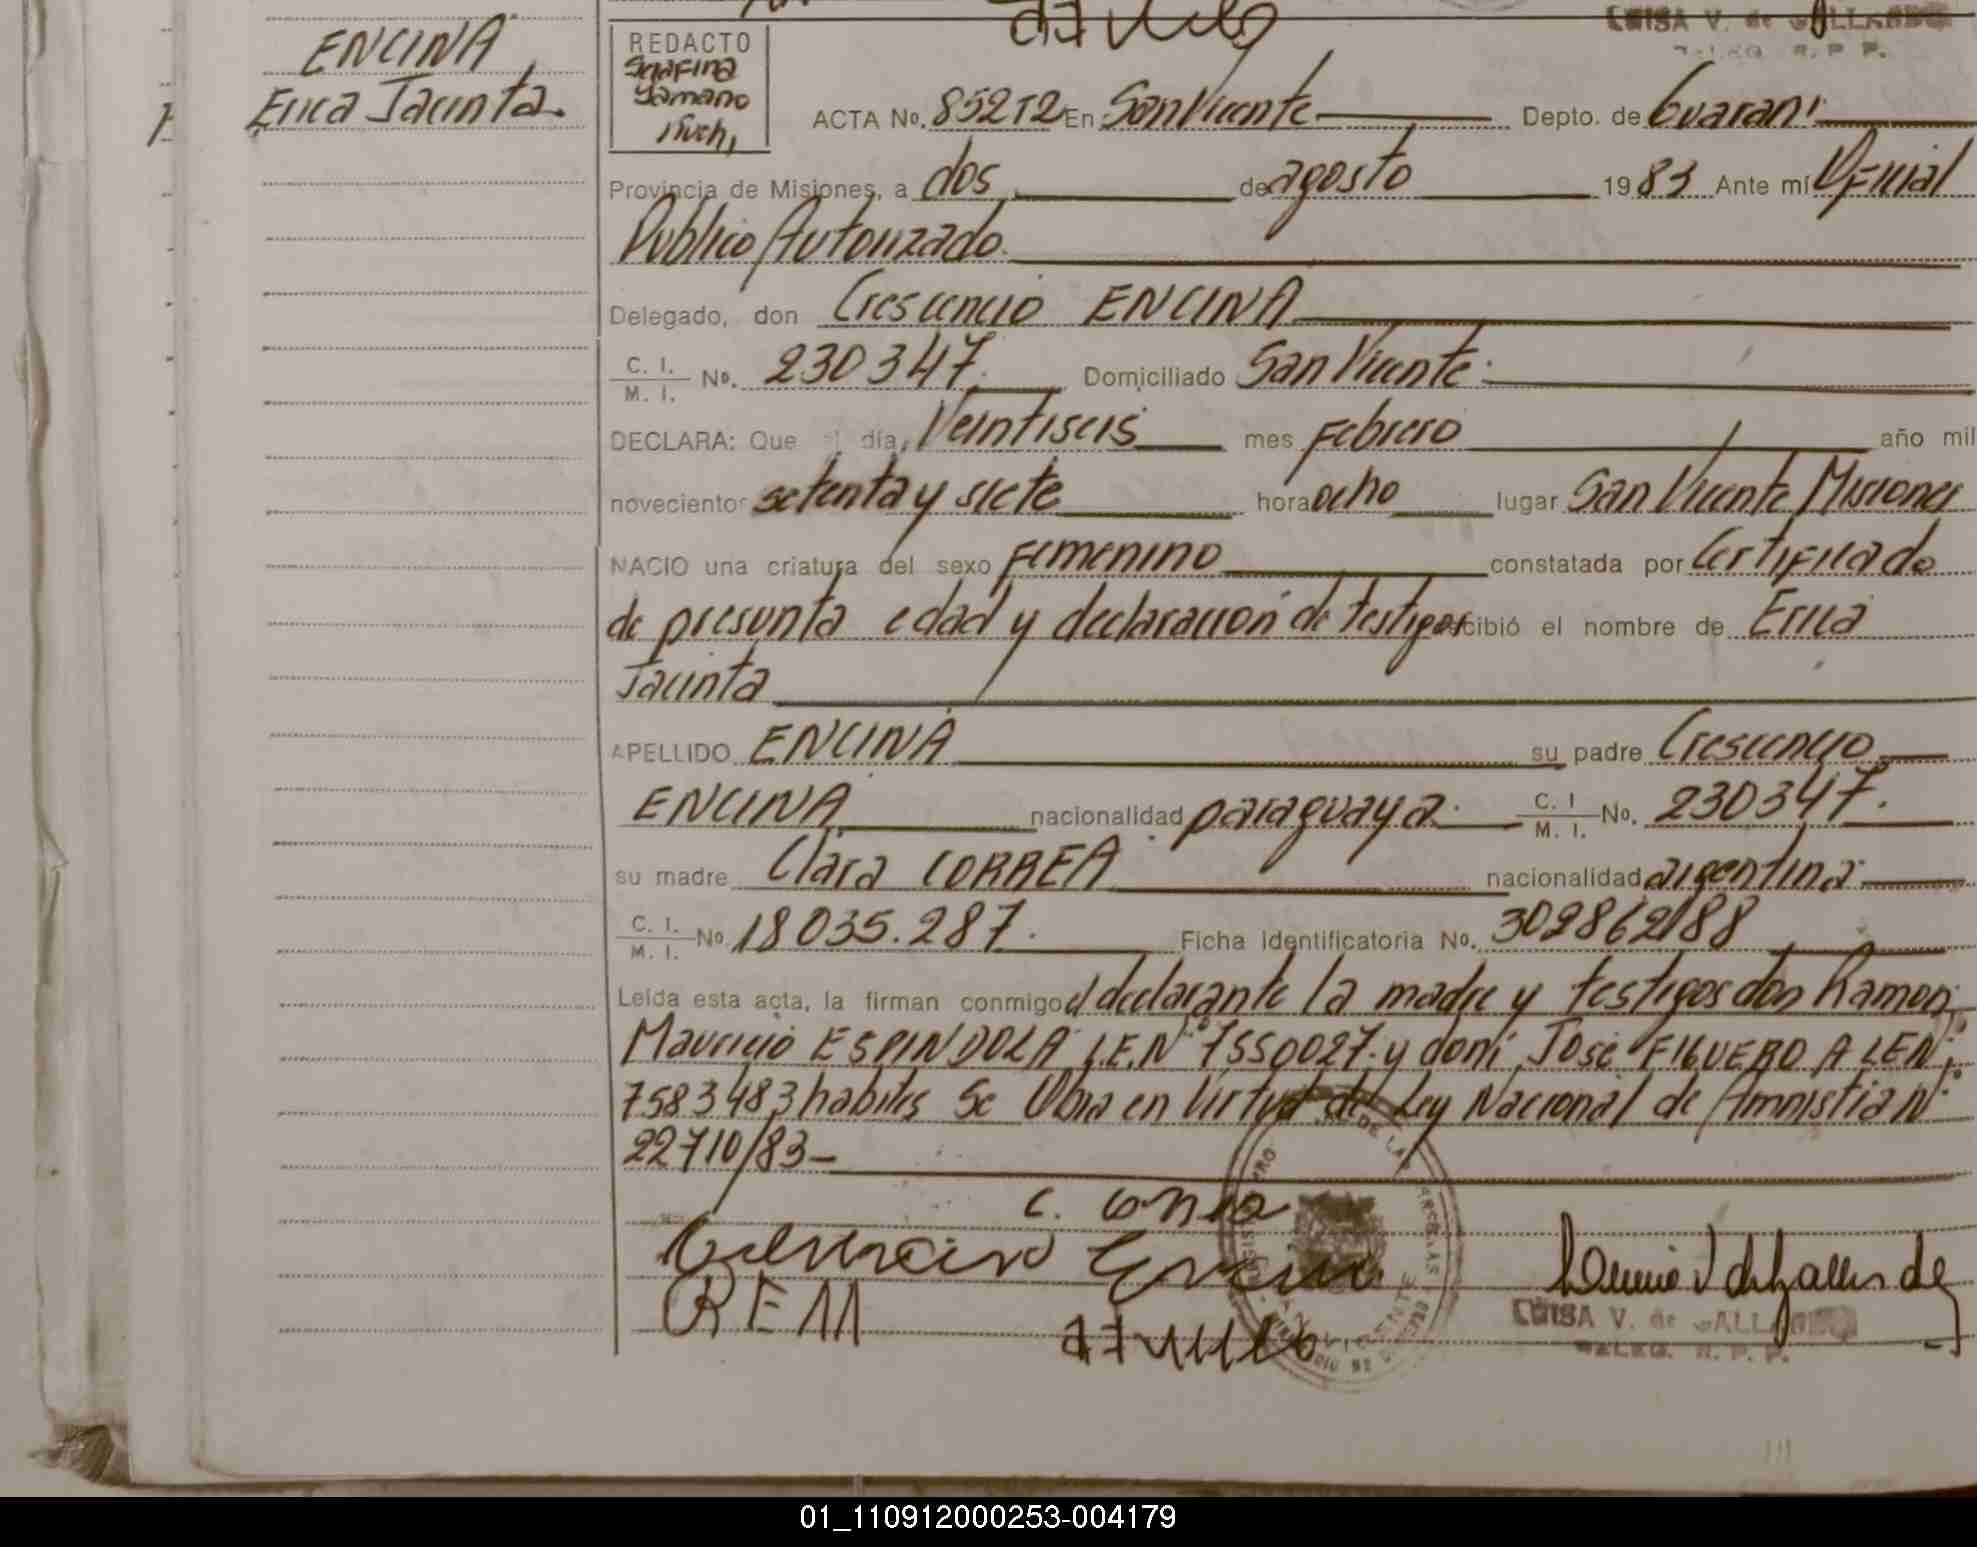 LUISA V. de GALLARDO
DELEG. R. P. P.
ENCINA
Erica Jacinta.
REDACTO
Serafina
ACTA No. 85212 En San Vicente Depto. de Guaraní
Provincia de Misiones, a dos de agosto 1983 Ante mí Oficial
Publico Autorizado.
Delegado, don Crescencio ENCINA
C. I.
M. I. No. 230347. Domiciliado San Vicente.
DECLARA: Que el día, Veintiseis mes Febrero año mil
novecientos setenta y siete hora ocho lugar San Vicente Misiones
NACIO una criatura del sexo Femenino constatada por Certificado
de presunta edad y declaración de testigos recibió el nombre de Erica
Jacinta
APELLIDO ENCINA su padre Crescencio
ENCINA nacionalidad paraguaya. C. I.
M. I. No. 230347.
su madre Clara CORREA nacionalidad argentina
C. I.
M. I. No. 18035.287. Ficha Identificatoria No. 302862/88
Leída esta acta, la firman conmigo el declarante la madre y testigos don Ramon
Mauricio ESPINDOLA L.E.Nº 7550027. y don José FIGUEROA LEN:
7583483 habiles Se Obra en Virtud del Ley Nacional de Amnistia Nº
22710/83-
REM
LUISA V. de GALLARDO
DELEG. R. P. P.
01_110912000253-004179